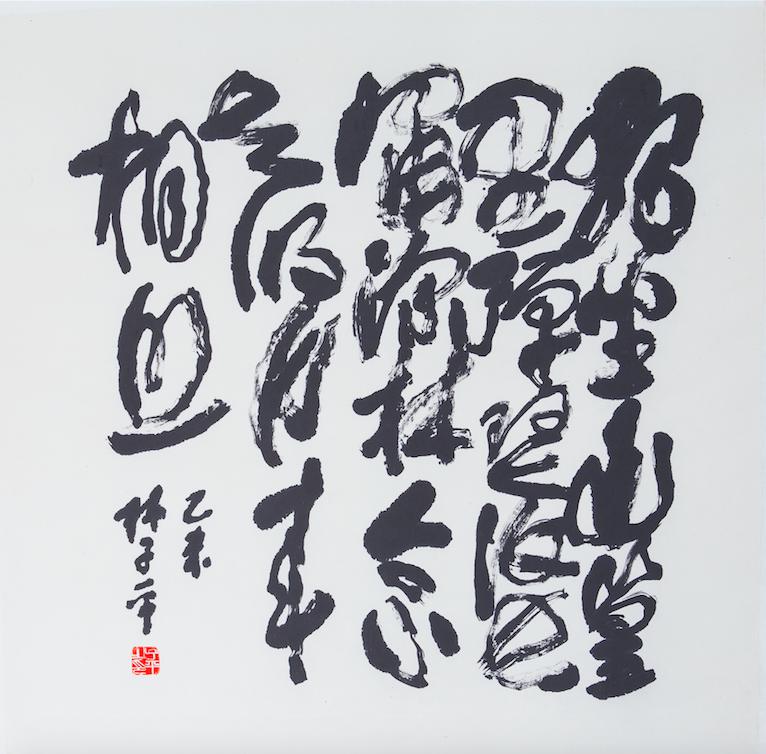 獨坐幽篁
里彈琴復長
嘯深林人不
知明月來
相照
乙未
林子平